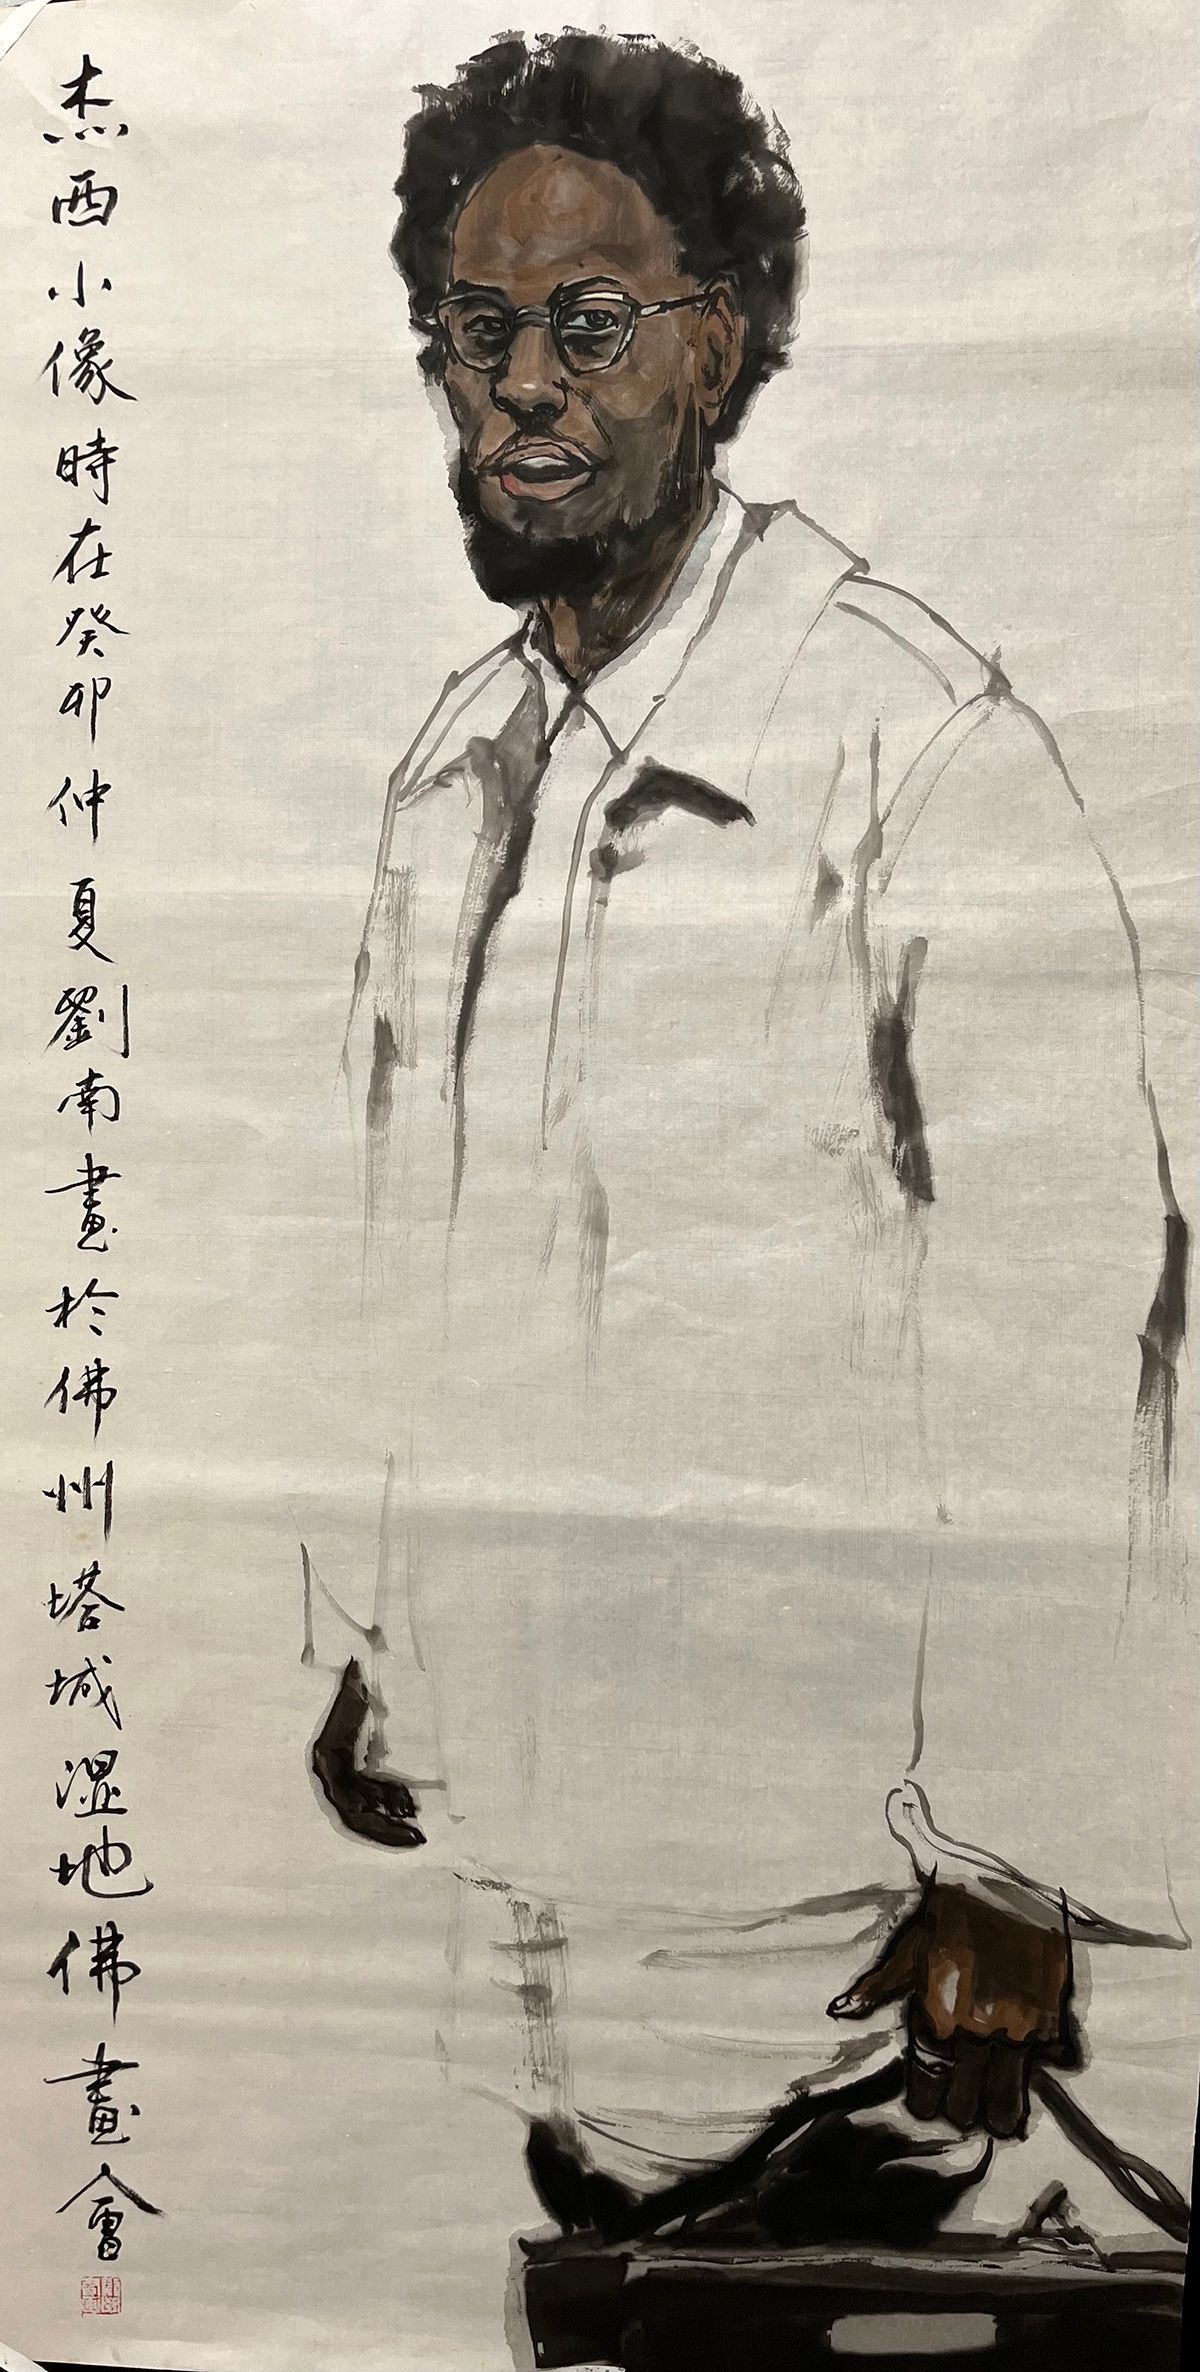 杰西小像時在癸卯仲夏劉南畫於佛州塔城湿地佛畫會